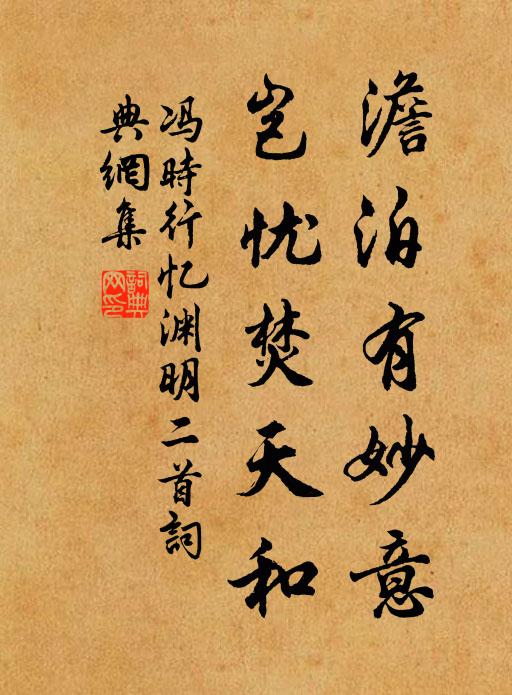 澹泊有妙意
岂忧焚天和
冯時行忆渊明二首詞
典網集
詞典网印